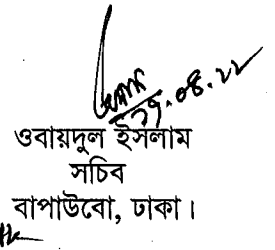 ২৭.০৪.২২
ওবায়দুল ইসলাম
সচিব
বাপাউবো, ঢাকা।